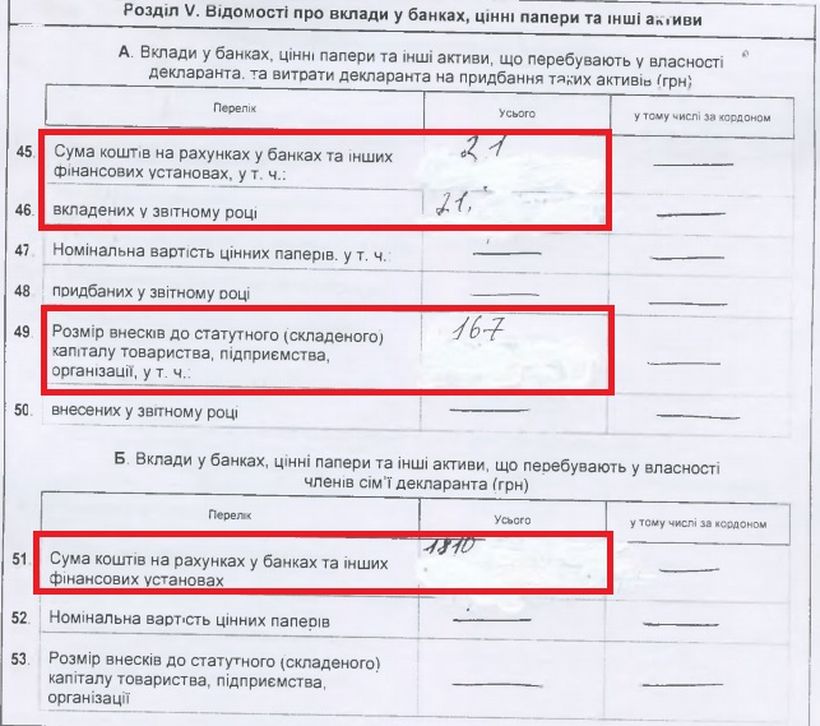 Розділ V. Відомості про вклади у банках, цінні папери та інші активи
А. Вклади у банках, цінні папери та інші активи, що перебувають у власності
декларанта. та витрати декларанта на придбання таких активів (грн)
Перелік Усього у тому числі за кордоном
45. Сума коштів на рахунках у банках та інших 21 —
фінансових установах, у т. ч.:
46. вкладених у звітному році 21. —
47. Номінальна вартість цінних паперів. у т. ч.: — —
48. придбаних у звітному році — —
49. Розмір внесків до статутного (складеного) 167 —
капіталу товариства, підприємства,
організації, у т. ч.:
50. внесених у звітному році — —
Б. Вклади у банках, цінні папери та інші активи, що перебувають у власності
членів сім’ї декларанта (грн)
Перелік Усього у тому числі за кордоном
51. Сума коштів на рахунках у банках та інших 1810 —
фінансових установах
52. Номінальна вартість цінних паперів — —
53. Розмір внесків до статутного (складеного) — —
капіталу товариства, підприємства,
організації